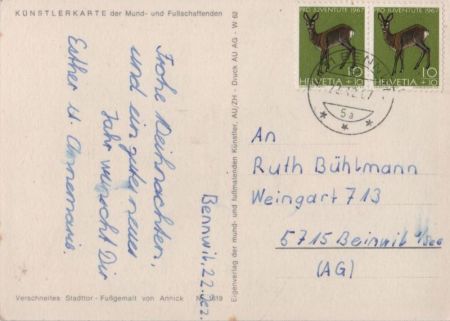 KÜNSTLERKARTE der Mund- und Fußschaffenden
Frohe Weihnachten,
und ein gutes neues
Jahr wünscht Dir
Esther u. Annemarie.
Bennwil, 22. Dez.
Verschneites Stadttor - Fußgemalt von Annick
Nr. 1619
Eigenverlag der mund- und fußmalenden Künstler, AU/ZH - Druck AU AG - W 62
PRO JUVENTUTE 1967
HELVETIA
10
+10
PRO JUVENTUTE 1967
HELVETIA
10
+10
5a
An
Ruth Bühlmann
Weingart 713
5715 Beinwil a/See
(AG)